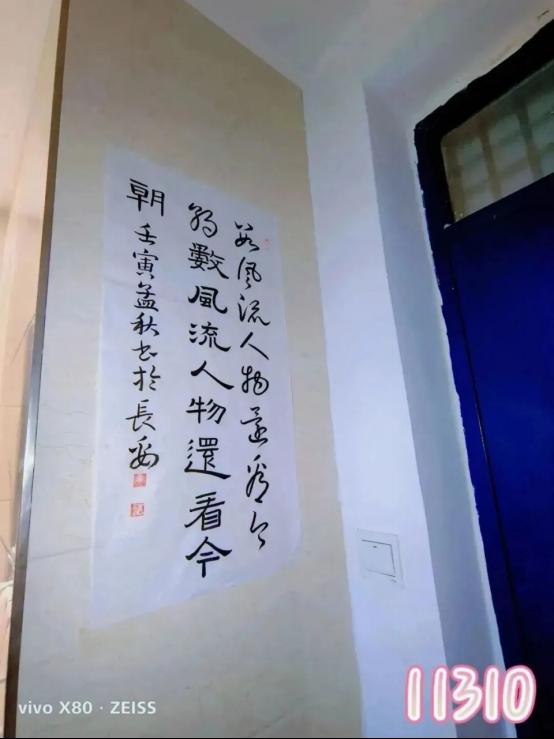 數風流人物還看今
朝數風流人物還看今
朝壬寅孟秋书於長安
vivo X80 · ZEISS
11310